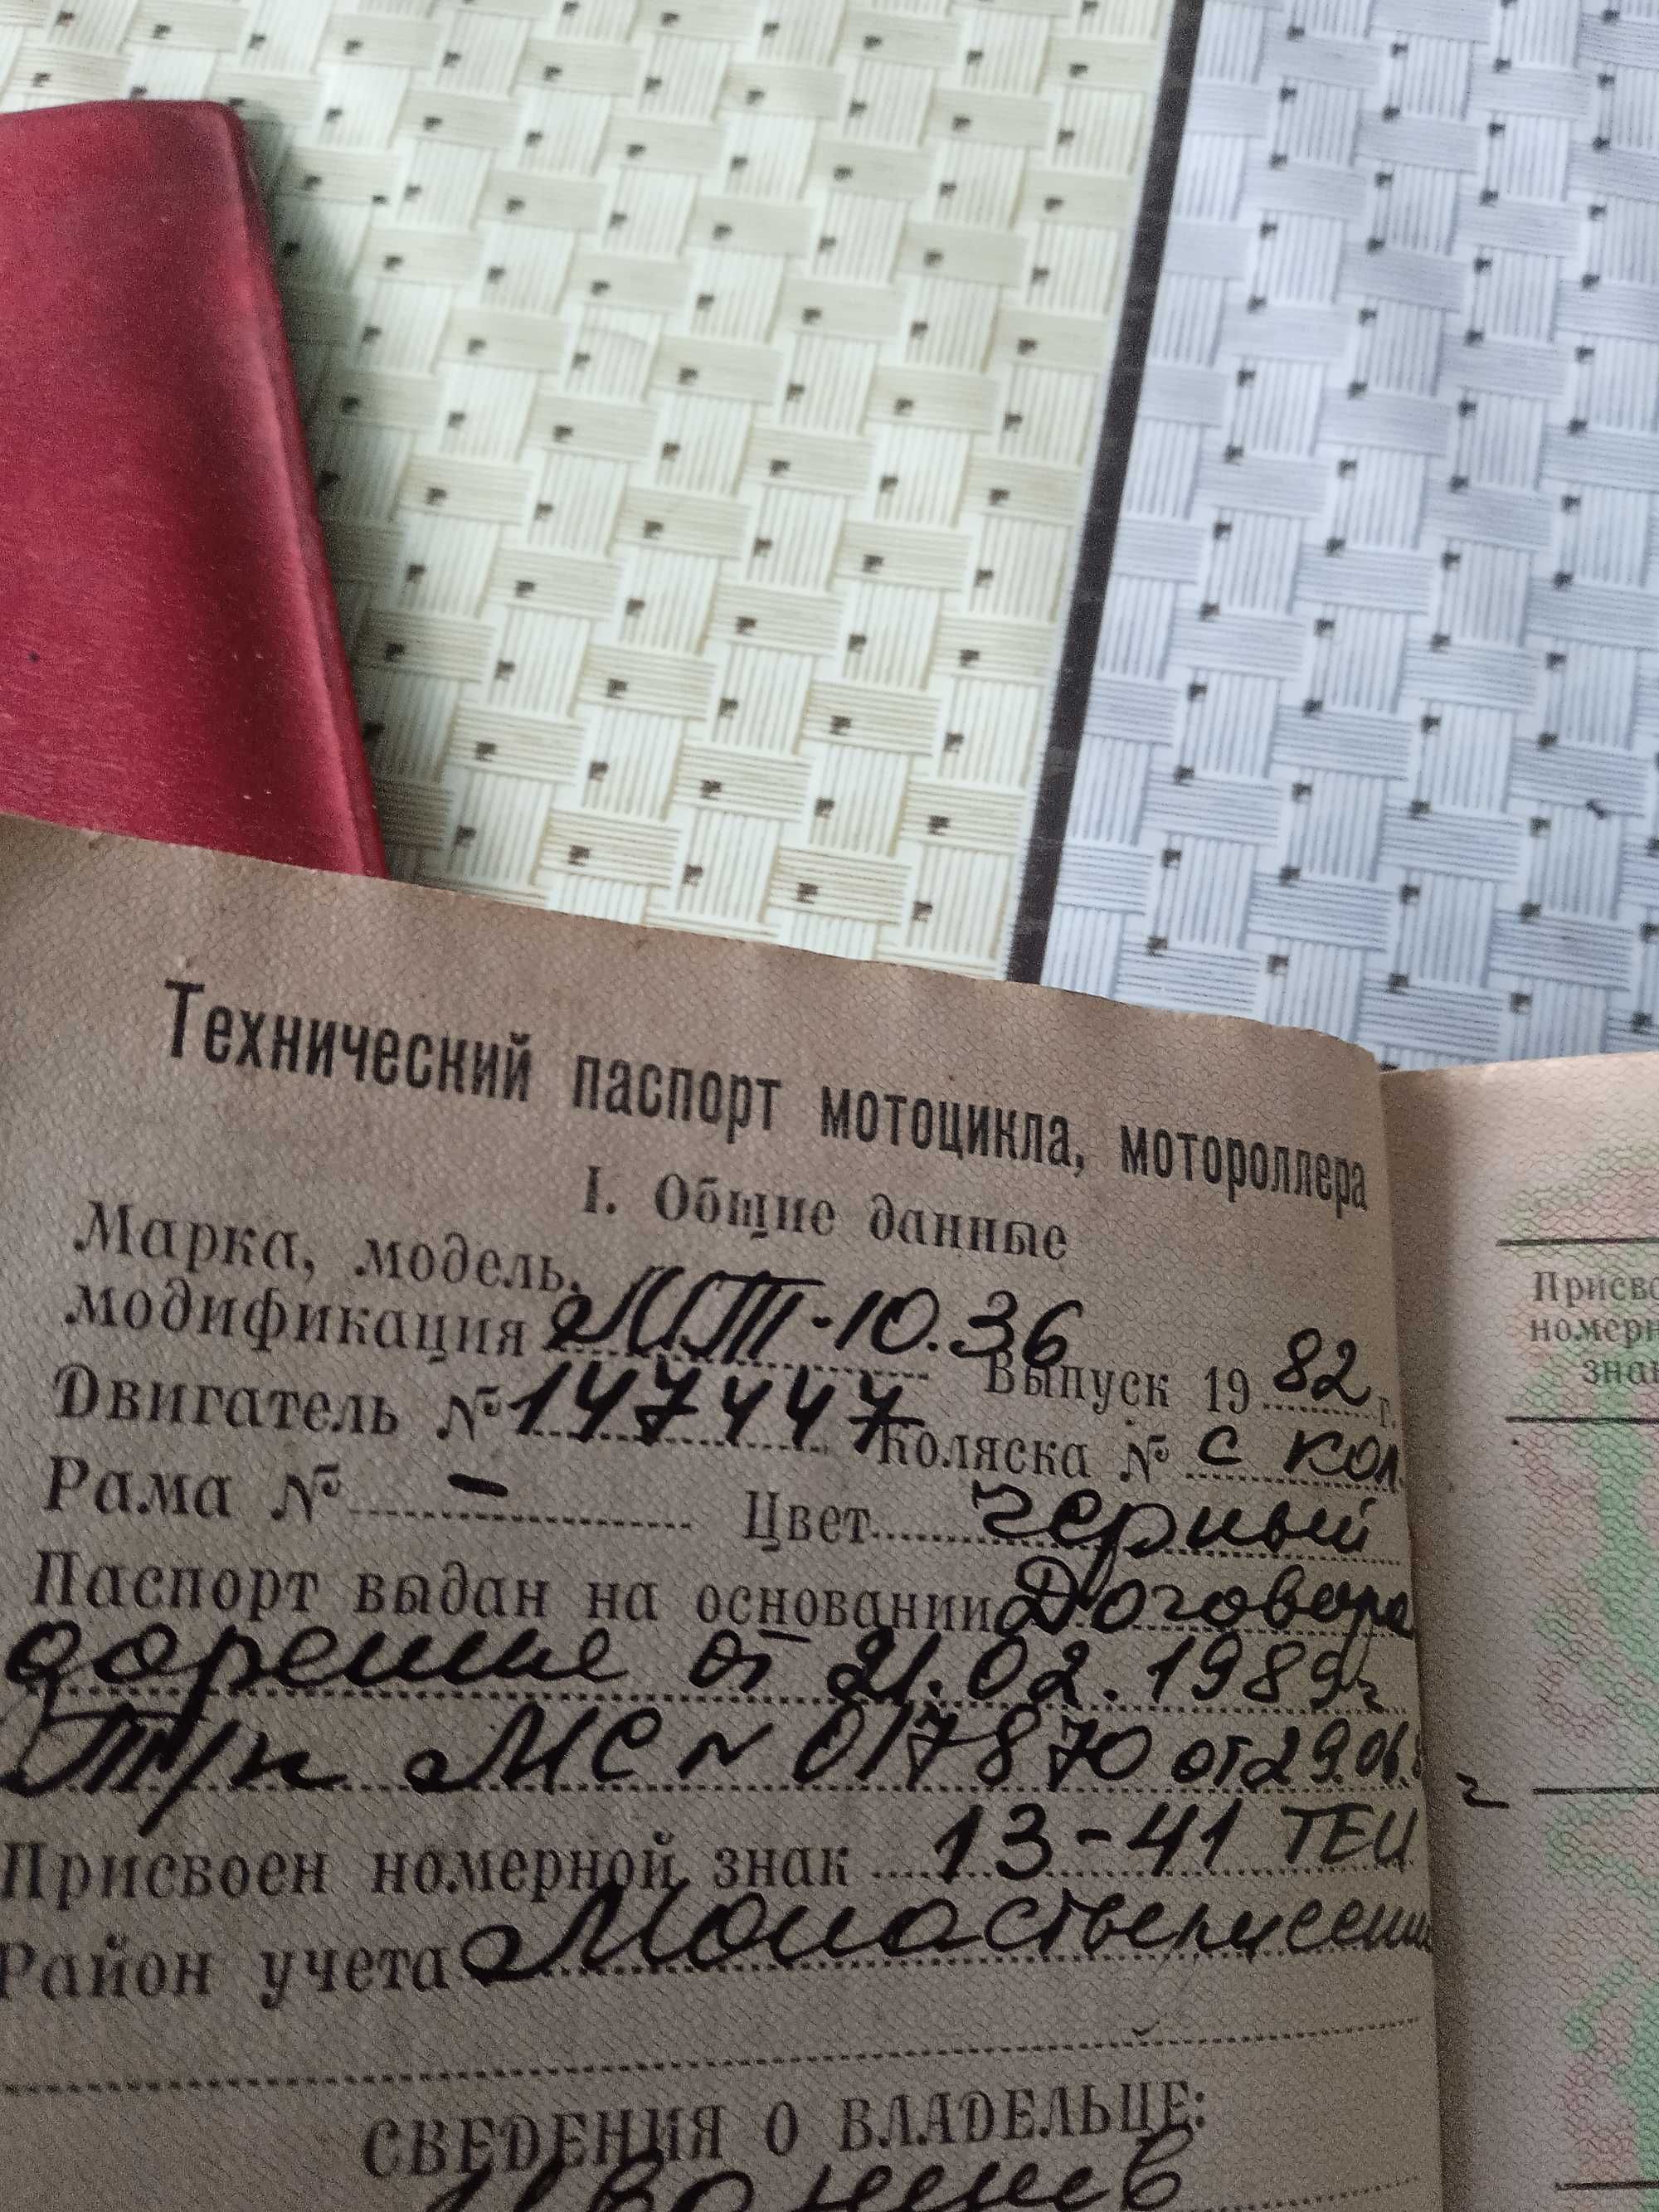 Технический паспорт мотоцикла, мотороллера
I. Общие данные
Марка, модель,
модификация МТ-10.36 Выпуск 1982 г.
Двигатель № 147447 Коляска № с кол.
Рама № - Цвет черный
Паспорт выдан на основании Договора
дарение от 21.02.1989г
Т/п МС № 017870 от 29.06.8 г
Присвоен номерной знак 13-41 ТЕЦ
Район учета
СВЕДЕНИЯ О ВЛАДЕЛЬЦЕ:
Присво
номерн
знак